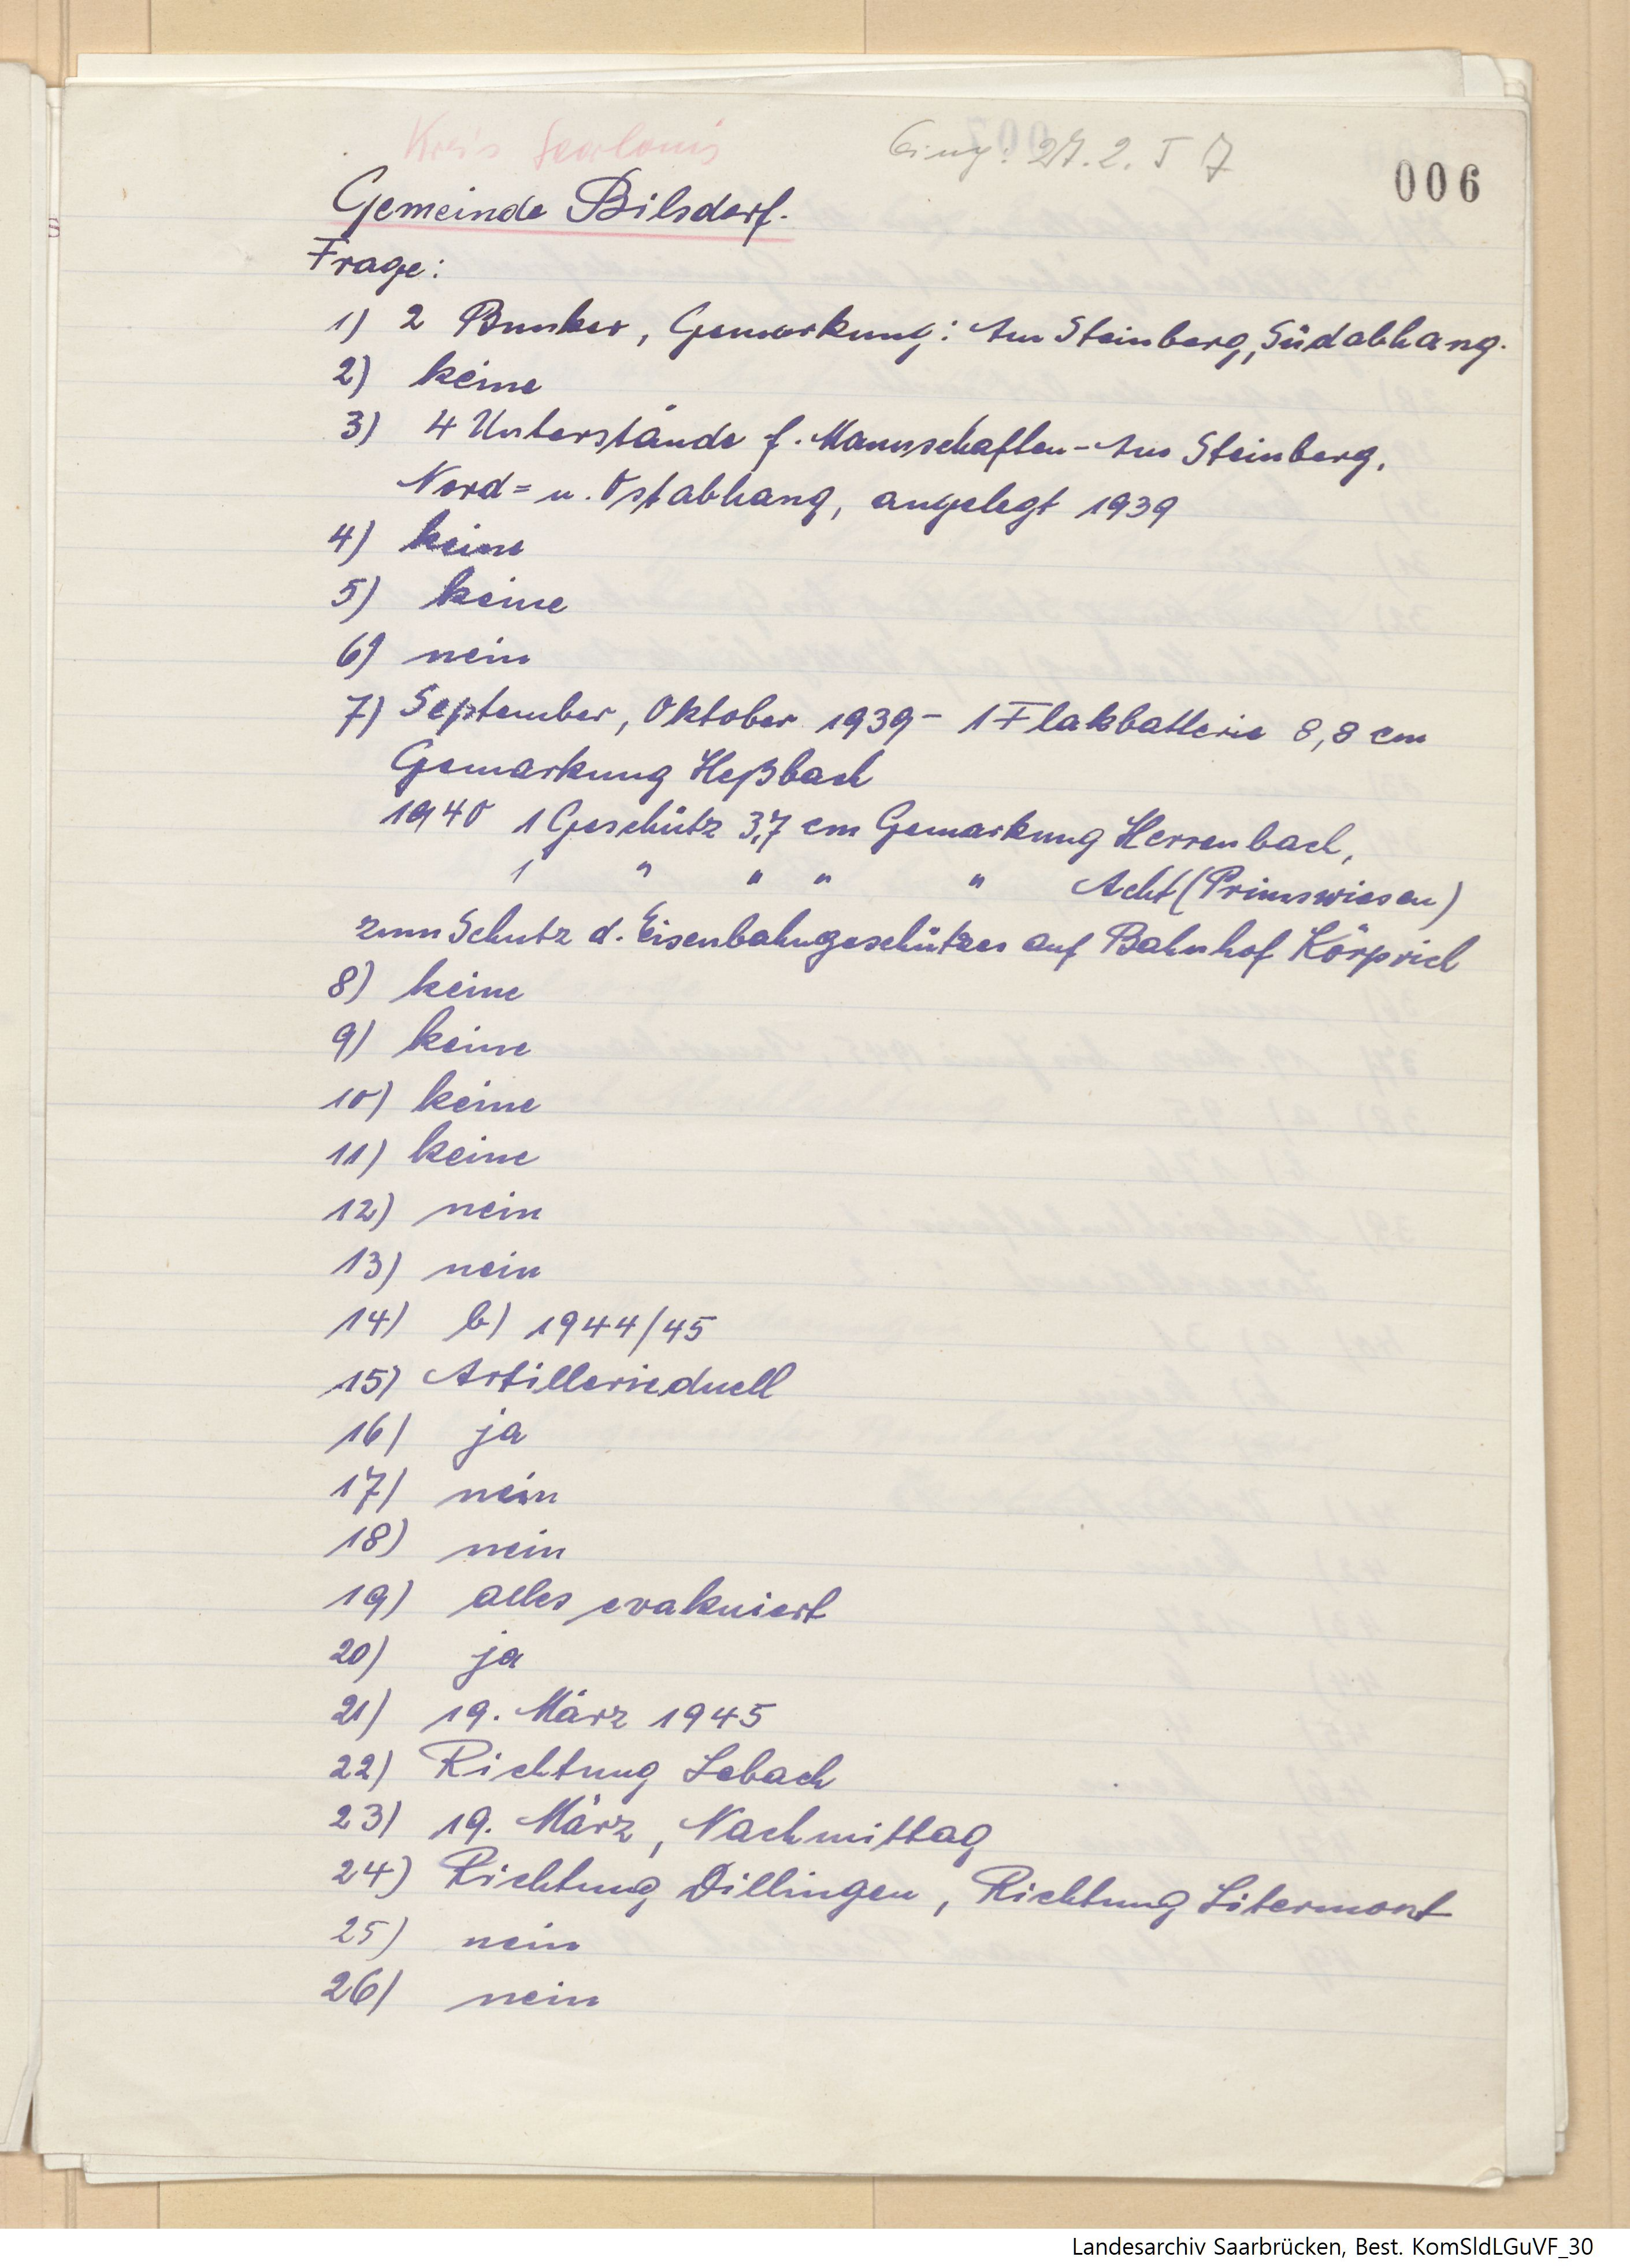 Kreis Saarlouis
Eing: 27.2.57
006
Gemeinde Bilsdorf.
Frage:
1) 2 Bunker, Gemarkung: Am Steinberg, Südabhang.
2) keine
3) 4 Unterstände f. Mannschaften - Am Steinberg,
Nord= u. Ostabhang, angelegt 1939
4) keine
5) keine
6) nein
7) September, Oktober 1939 - 1 Flakbatterie 8,8 cm
Gemarkung Heßbach
1940 1 Geschütz 3,7 cm Gemarkung Herrenbach,
1 " " " " Acht (Primswiesen)
zum Schutz d. Eisenbahngeschützes auf Bahnhof Körprich
8) keine
9) keine
10) keine
11) keine
12) nein
13) nein
14) b) 1944/45
15) Artillerieduell
16) ja
17) nein
18) nein
19) alles evakuiert
20) ja
21) 19. März 1945
22) Richtung Lebach
23) 19. März, Nachmittag
24) Richtung Dillingen, Richtung Litermont
25) nein
26) nein
Landesarchiv Saarbrücken, Best. KomSldLGuVF_30